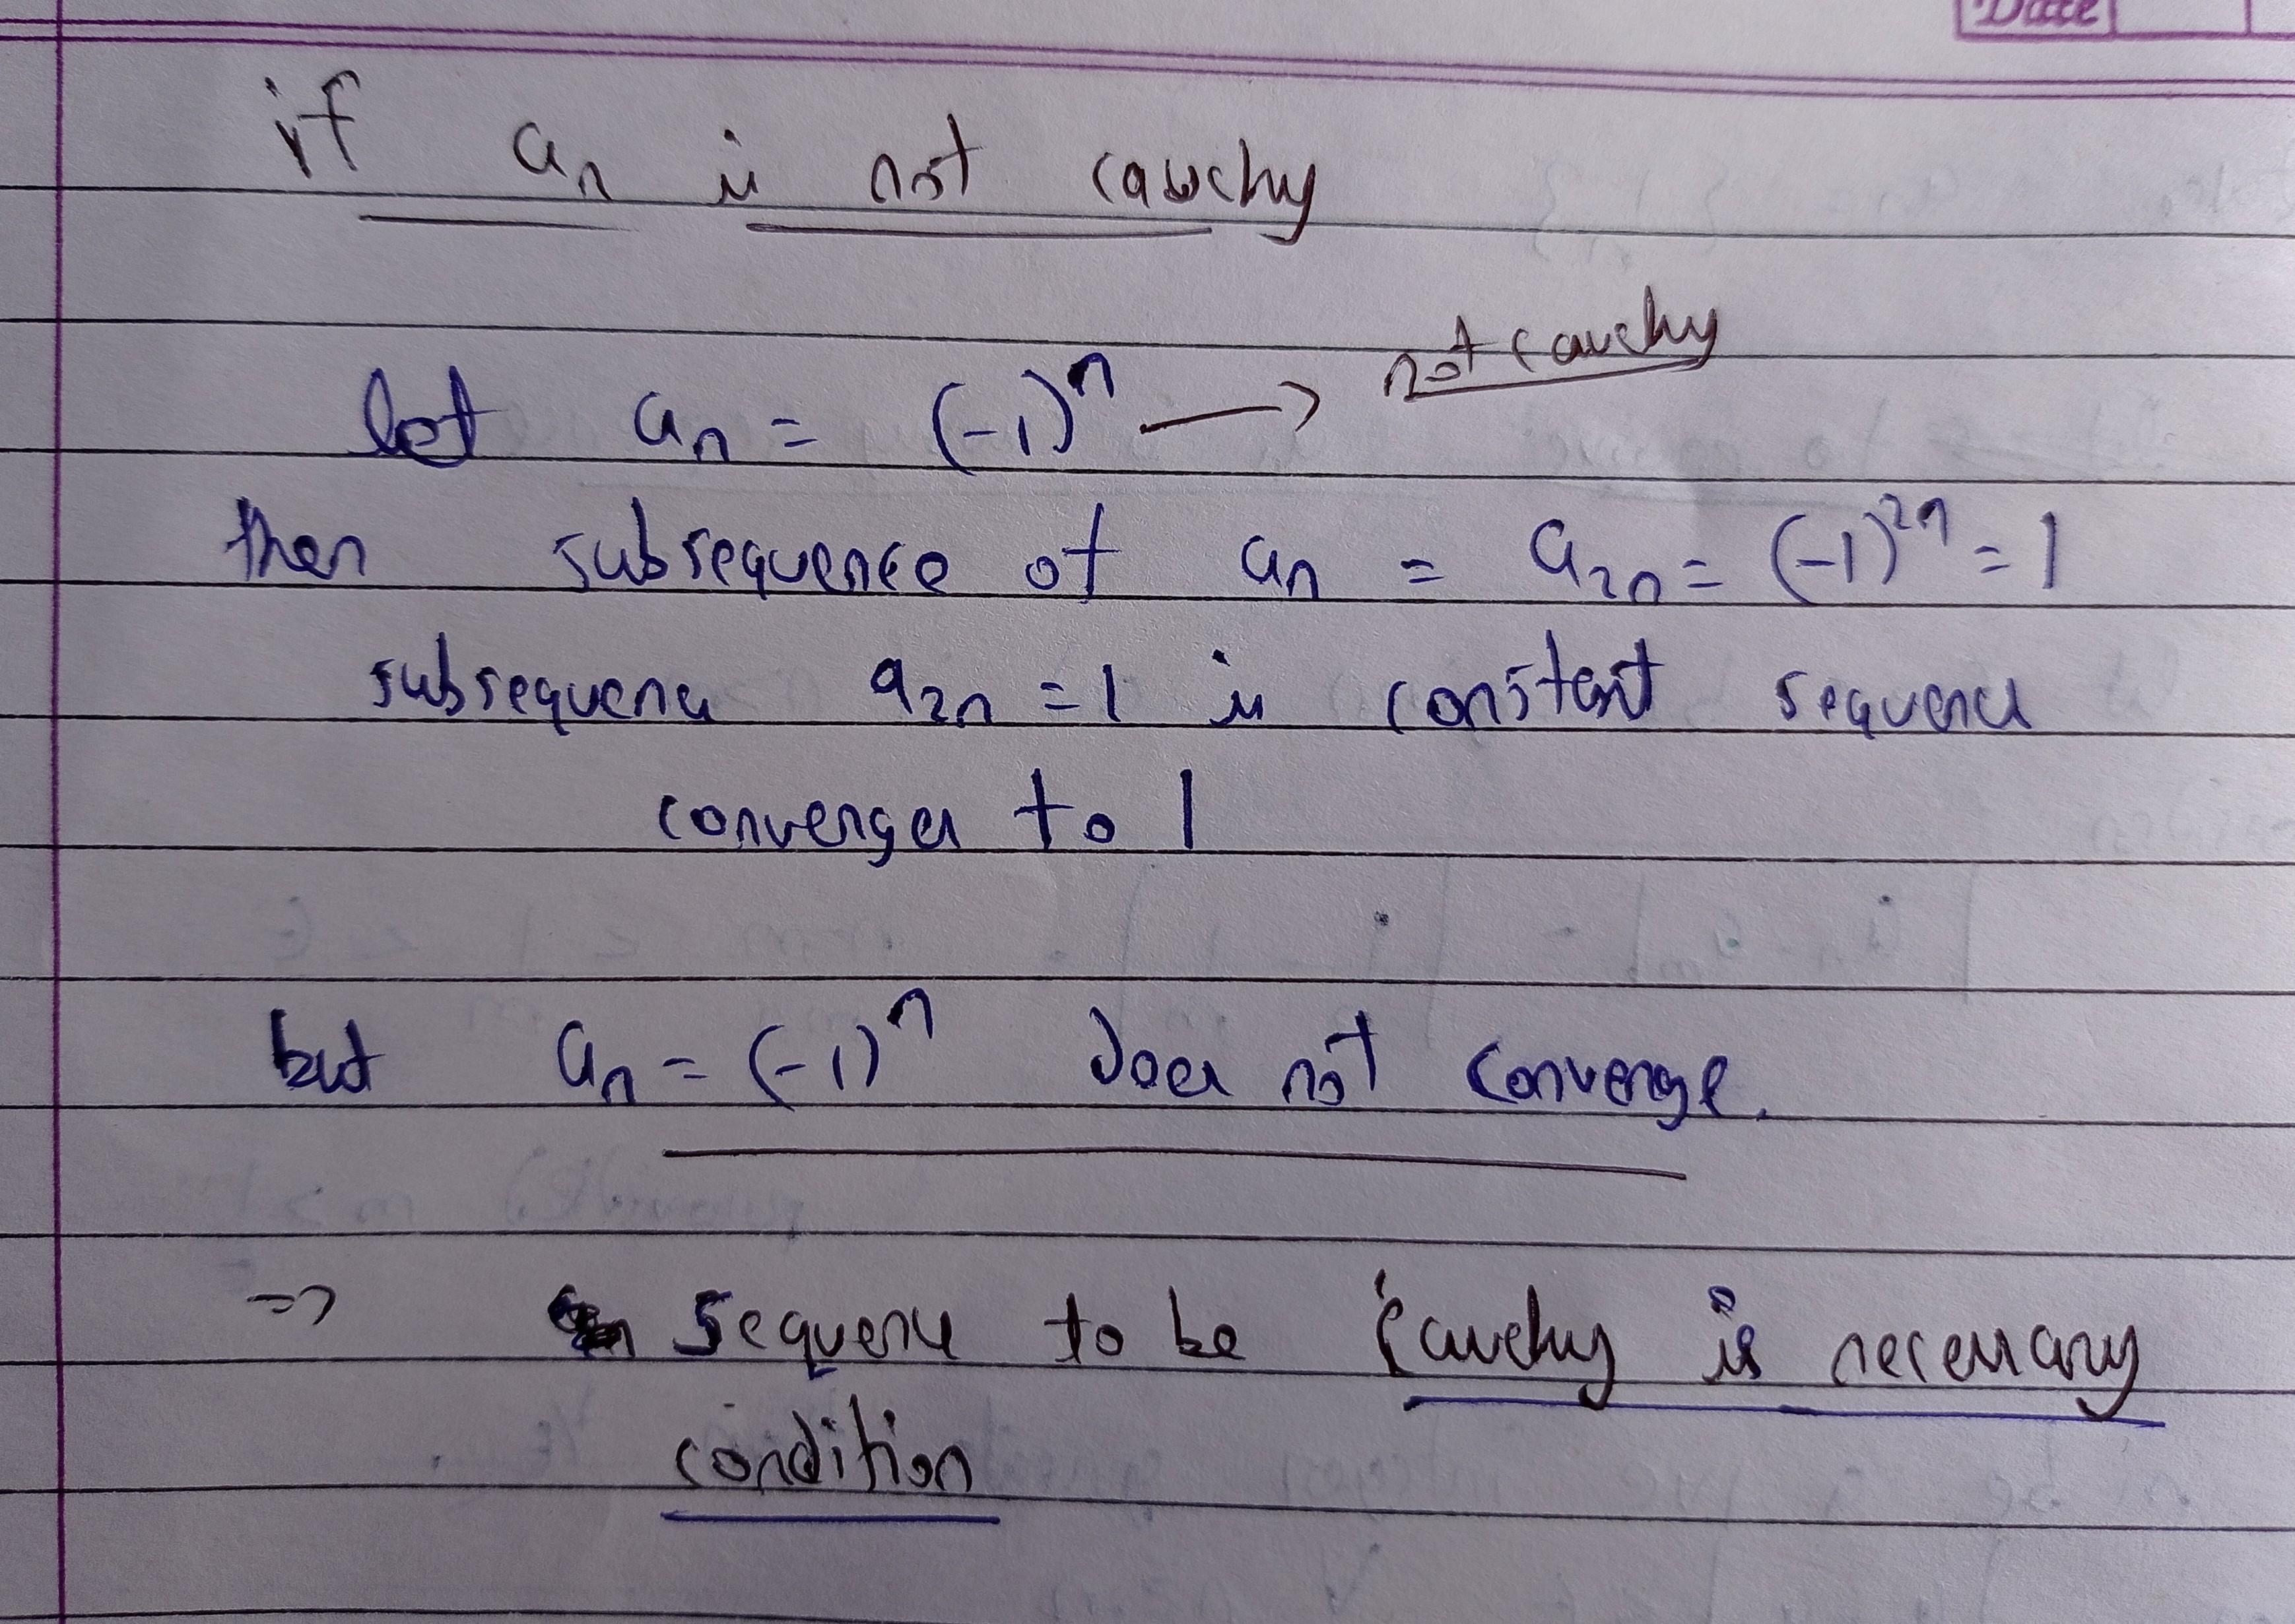 Date
if an is not cauchy
let an = (-1)ⁿ → not cauchy
then subsequence of an = a2n = (-1)²ⁿ = 1
subsequence a2n = 1 is constant sequence
converges to 1
but an = (-1)ⁿ does not converge.
=> sequence to be cauchy is necessary
condition